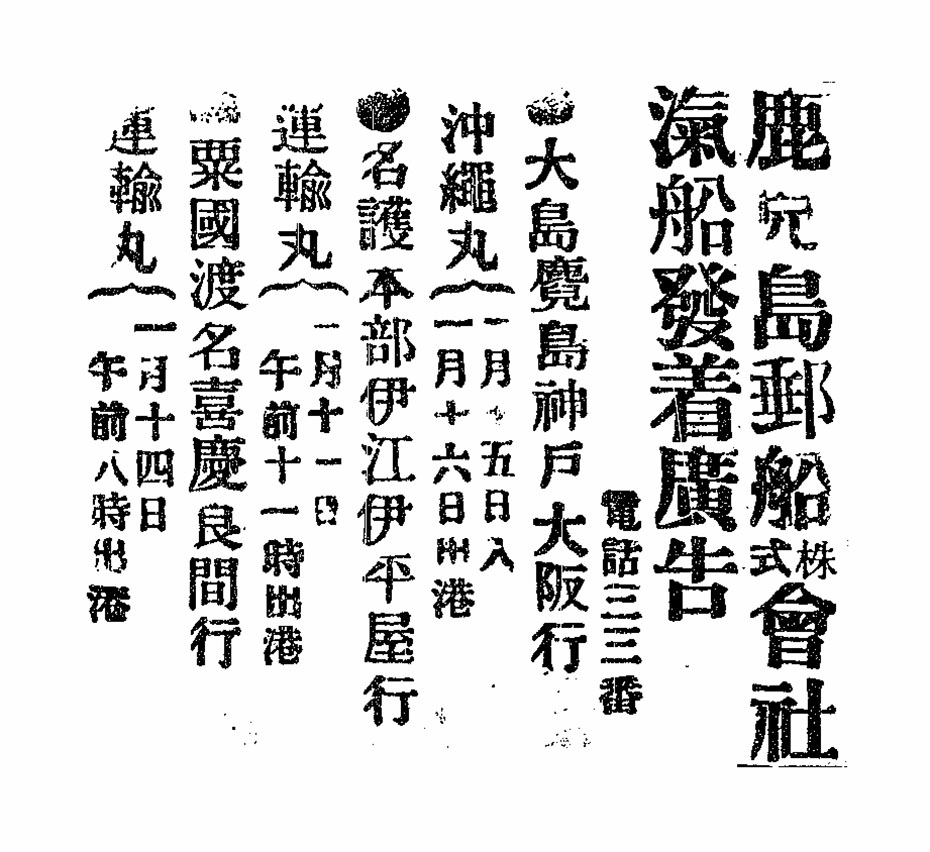 鹿兒島郵船株式會社
滊船發着廣告
電話三三番
●大島麑島神戸大阪行
沖繩丸
一月十五日入
一月十六日出港
●名護本部伊江伊平屋行
運輸丸
一月十一日
午前十一時出港
●粟國渡名喜慶良間行
運輸丸
一月十四日
午前八時出港